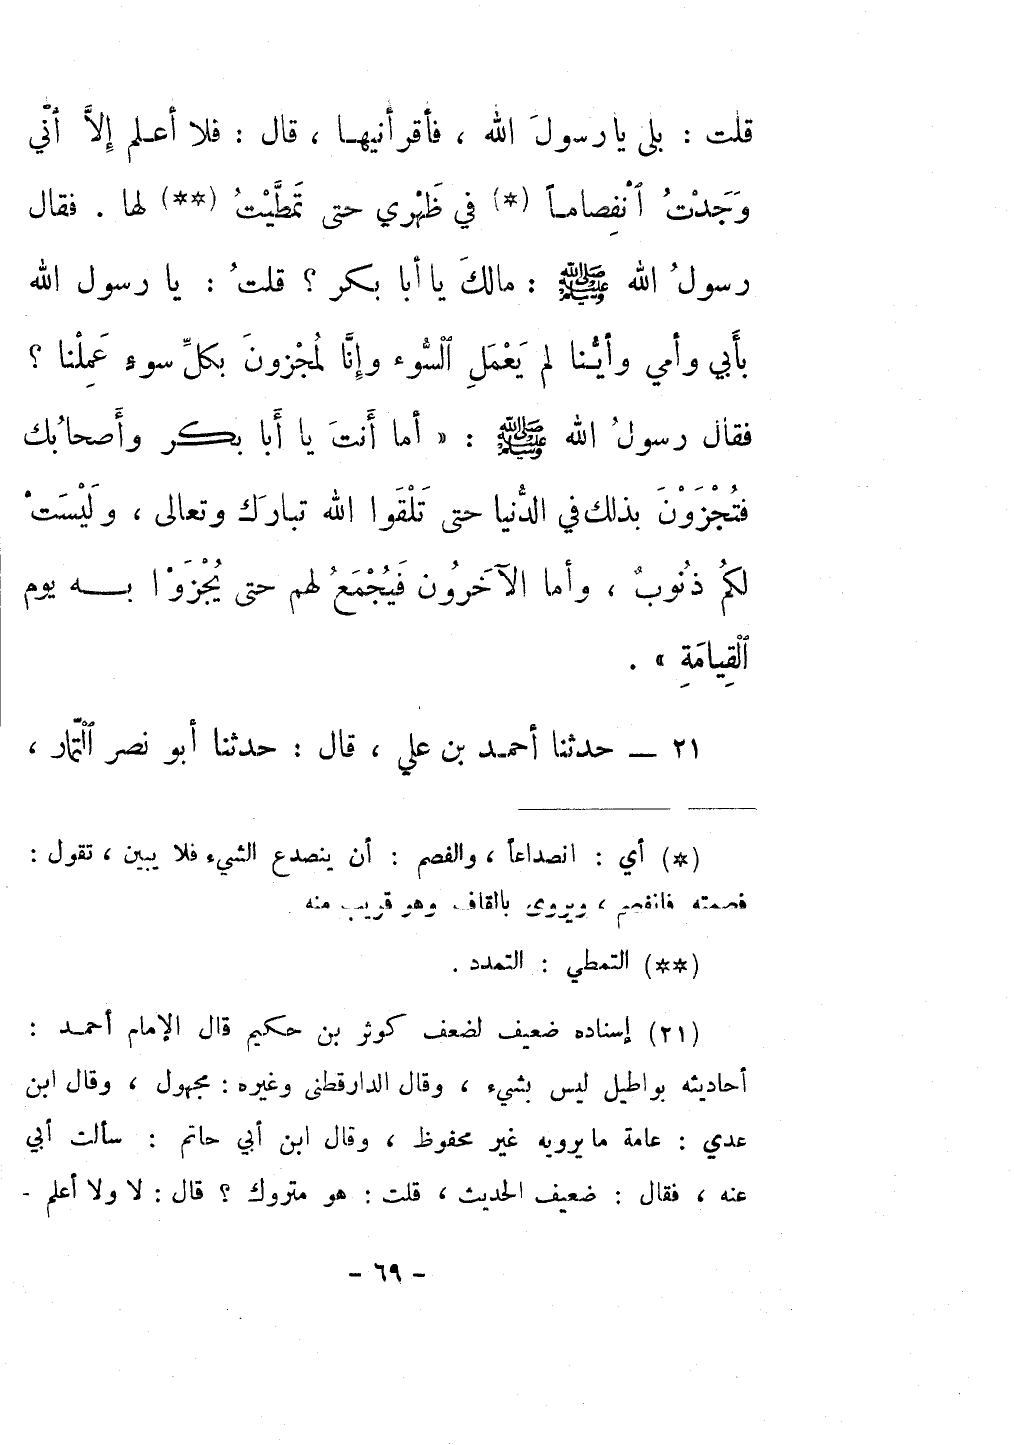 قلت : بلى يا رسولَ الله ، فأقرأنيهـا ، قال : فلا أعـلم إِلاَّ أنّي
وَجَدْتُ ٱنْفِصامـاً (*) في ظَهْري حتى تَمَطَّيْتُ (**) لها . فقال
رسولُ الله ﷺ : مالكَ يا أبا بكر ؟ قلتُ : يا رسول الله
بأَبي وأمي وأيُّـنا لم يَعْمَلِ ٱلسُّوء وإِنَّا لمُجْزونَ بكلِّ سوء عَمِلْنا ؟
فقال رسولُ الله ﷺ : « أما أَنتَ يا أَبا بكر وأَصحابُك
فتُجْزَوْنَ بذلك في الدُّنيا حتى تَلْقَوا الله تبارَك وتعالى ، ولَيْسَتْ
لكمُ ذنُوبٌ ، وأما الآخَرُون فَيُجْمَعُ لهم حتى يُجْزَوْا بـــه يوم
ٱلْقِيامَةِ » .
٢١ — حدثنا أحمـد بن علي ، قال : حدثنا أبو نصر ٱلتّمار ،
(*) أي : انصداعاً ، والفصم : أن ينصدع الشيء فلا يبين ، تقول :
فصمته فانفصم ، ويروى بالقاف وهو قريب منه
(**) التمطي : التمدد .
(٢١) إسناده ضعيف لضعف كوثر بن حكيم قال الإمام أحمـد :
أحاديثه بواطيل ليس بشيء ، وقال الدارقطنى وغيره : مجهول ، وقال ابن
عدي : عامة ما يرويه غير محفوظ ، وقال ابن أبي حاتم : سألت أبي
عنه ، فقال : ضعيف الحديث ، قلت : هو متروك ؟ قال : لا ولا أعلم -
- ٦٩ -